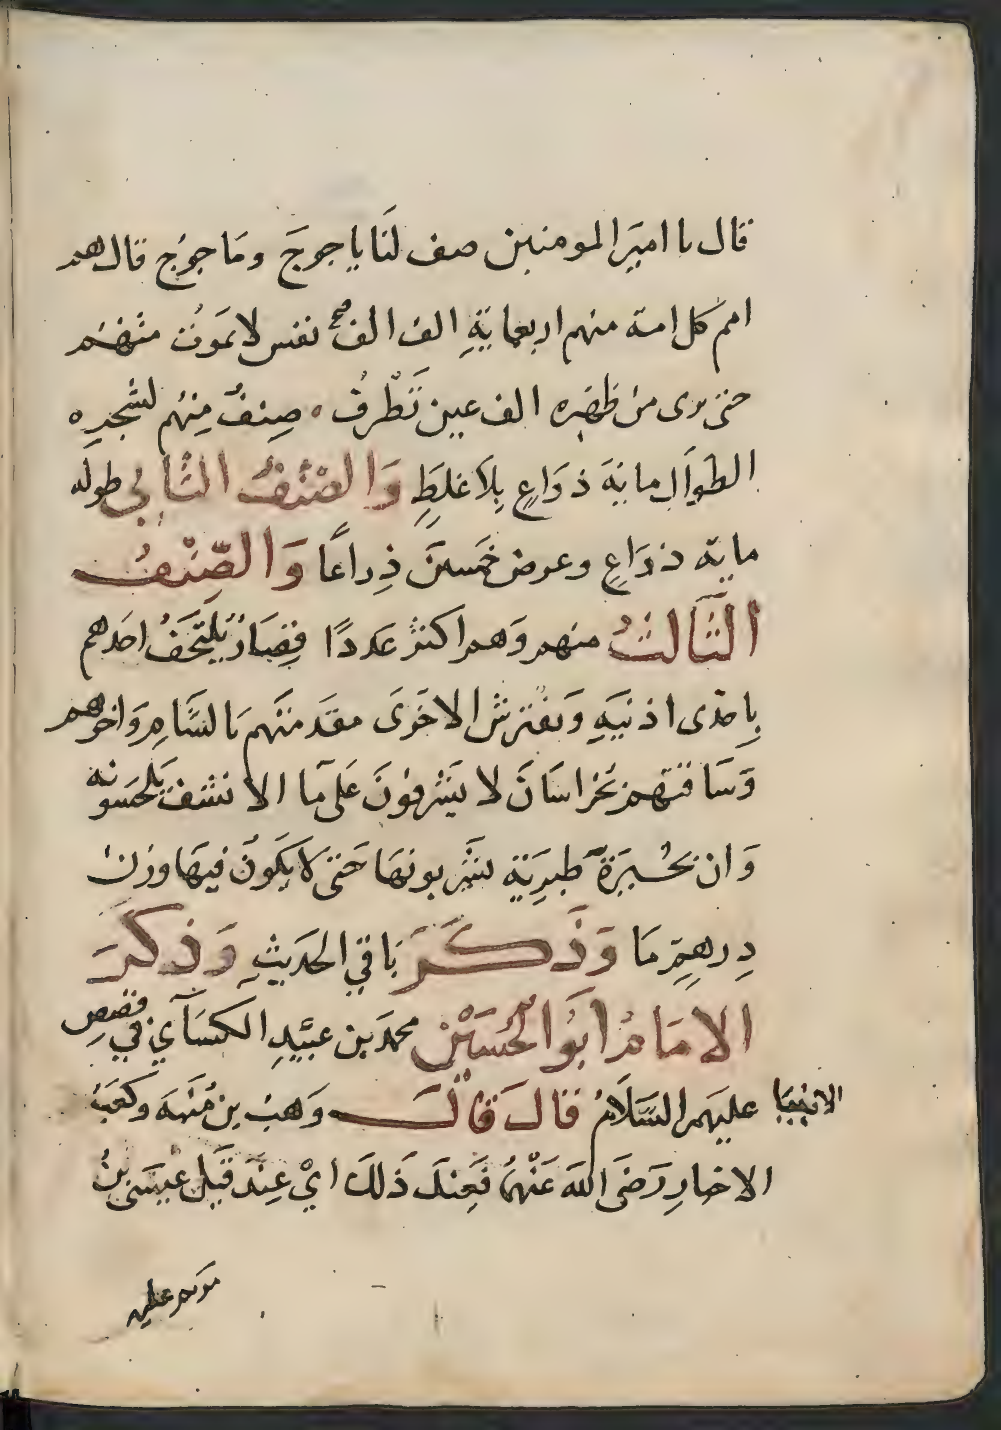 قال يا امير المومنين صف لنا ياجوج وماجوج قال هم
امم كل امة منهم اربعماية الف الف نفس لا يموت منهم
حتى يرى من ظهره الف عين تطرف صنف منهم لشجره
الطوال ماية ذراع بلا غلظ والصنف الثاني طوله
ماية ذراع وعرض خمسين ذراعا والصنف
الثالث منهم وهم اكثر عددا قصار يلتحف احدهم
باحدى اذنيه ويفترش الاخرى مقدمتهم بالشام واخرهم
وساقتهم بخراسان لا يشرفون على ما الا نشف يلحسونه
وان بحيرة طبرية يشربونها حتى لا يكون فيها وزن
درهم ما وذكر باقي الحديث وذكر
الامام ابو الحسين محمد بن عبيد الكسآي في قصص
الانبيا عليهم السلام قال قال وهب بن منبه وكعب
الاخبار رضي الله عنهم فعند ذلك اي عند قبل عيسى بن
مريم عليه